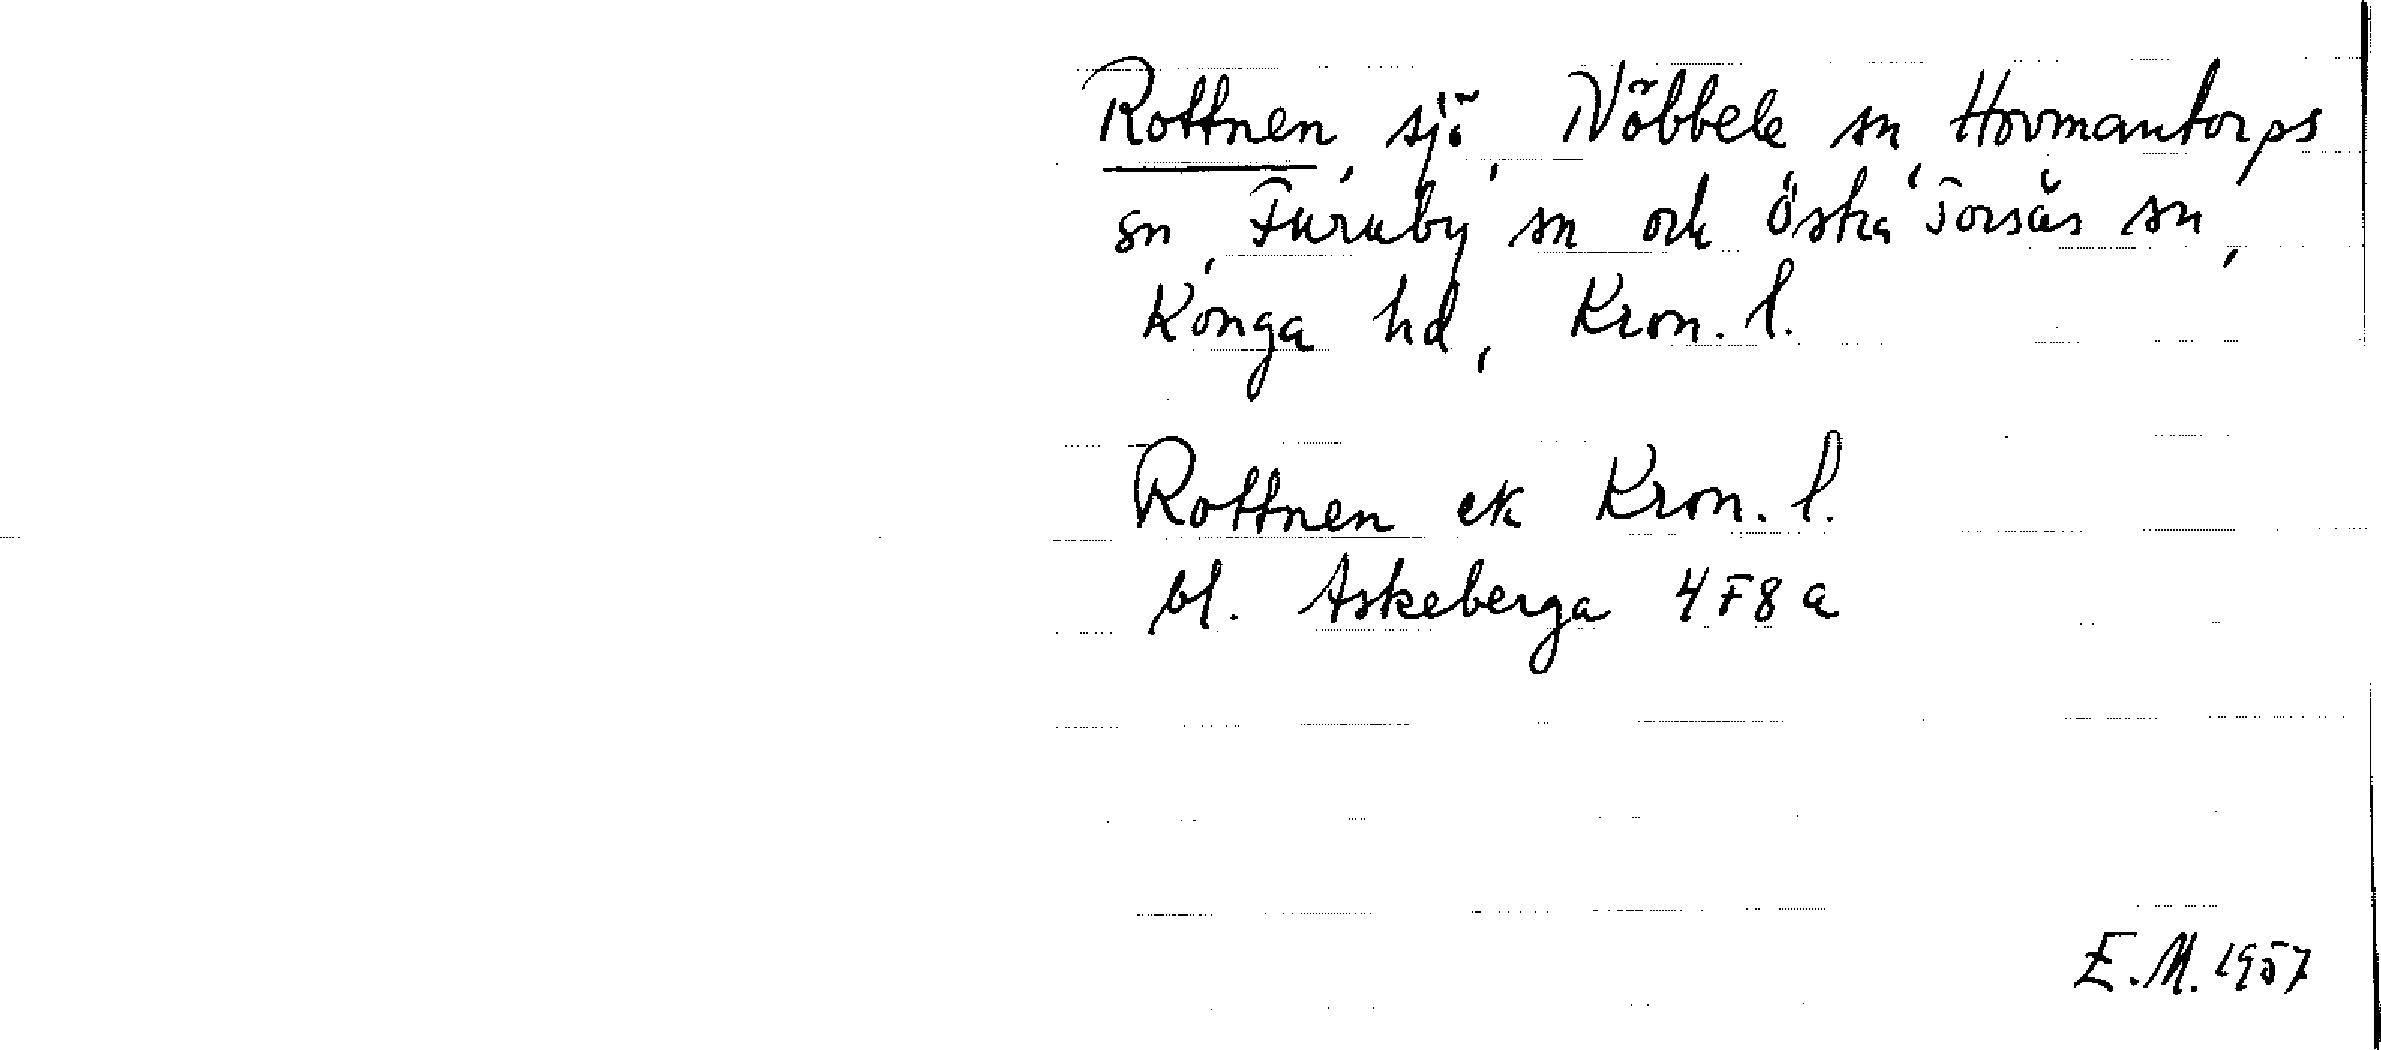 Rottnen, sjö, Nöbbele sn, Hovmantorps
sn, Furuby sn och Östra Torsås sn,
Konga hd, Kron. l.
Rottnen ek Kron. l.
bl. Askeberga 4F8a
E.M. 1957